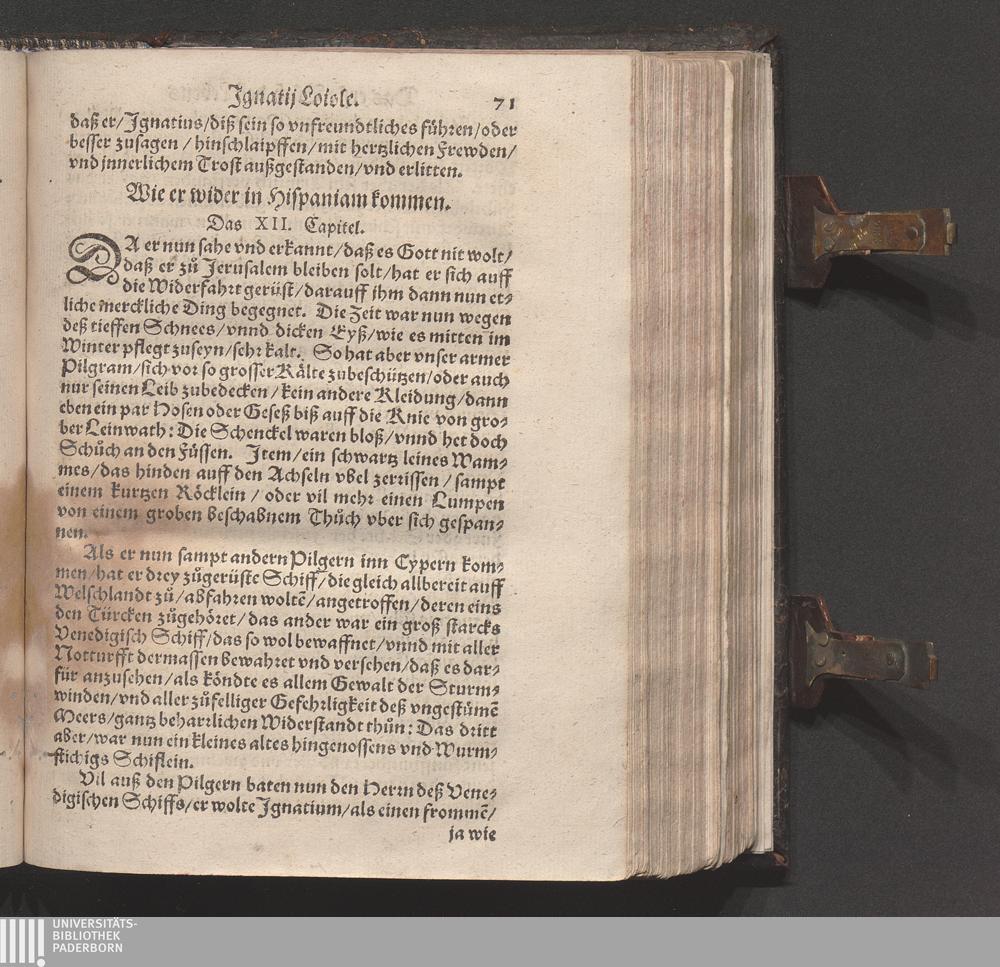 Ignatij Loiole. 71
daß er/Ignatius/diß sein so vnfreundtliches führen/oder
besser zusagen/hinschlaipffen/mit hertzlichen Frewden/
vnd innerlichem Trost außgestanden/vnd erlitten.
Wie er wider in Hispaniam kommen.
Das XII. Capitel.
DA er nun sahe vnd erkannt/daß es Gott nit wolt/
daß er zů Jerusalem bleiben solt/hat er sich auff
die Widerfahrt gerüst/darauff ihm dann nun et⸗
liche merckliche Ding begegnet. Die Zeit war nun wegen
deß tieffen Schnees/vnnd dicken Eyß/wie es mitten im
Winter pflegt zuseyn/sehr kalt. So hat aber vnser armer
Pilgram/sich vor so grosser Kälte zubeschützen/oder auch
nur seinen Leib zubedecken/kein andere Kleidung/dann
eben ein par Hosen oder Geseß biß auff die Knie von gro⸗
ber Leinwath: Die Schenckel waren bloß/vnnd het doch
Schůch an den Füssen. Item/ein schwartz leines Wam⸗
mes/das hinden auff den Achseln vbel zerrissen/sampt
einem kurtzen Röcklein/oder vil mehr einen Lumpen
von einem groben beschabnem Thůch vber sich gespan⸗
nen.
Als er nun sampt andern Pilgern inn Cypern kom⸗
men/hat er drey zůgerüste Schiff/die gleich allbereit auff
Welschlandt zů/abfahren woltẽ/angetroffen/deren eins
den Türcken zůgehöret/das ander war ein groß starcks
Venedigisch Schiff/das so wol bewaffnet/vnnd mit aller
Notturfft dermassen bewahret vnd versehen/daß es dar⸗
für anzusehen/als köndte es allem Gewalt der Sturm⸗
winden/vnd aller zůfelliger Gefehrligkeit deß vngestümẽ
Meers/gantz beharrlichen Widerstandt thůn: Das dritt
aber/war nun ein kleines altes hingenossens vnd Wurm⸗
stichigs Schiflein.
Vil auß den Pilgern baten nun den Herrn deß Vene⸗
digischen Schiffs/er wolte Ignatium/als einen frommẽ/
ja wie
UNIVERSITÄTS-
BIBLIOTHEK
PADERBORN